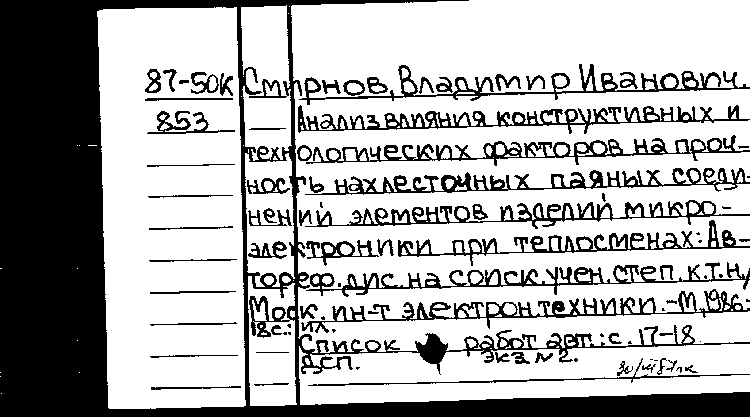 87-50К Смирнов, Владимир Иванович.
853 Анализ влияния конструктивных и
технологических факторов на проч-
ность нахлесточных паяных соеди-
нений элементов изделий микро-
электроники при теплосменах: Ав-
тореф. дис. на соиск. учен. степ. к.т.н.
Моск. ин-т электрон. техники. -М, 1986:
18с.: ил.
Список работ авт.: с. 17-18
ДСП. экз №2.